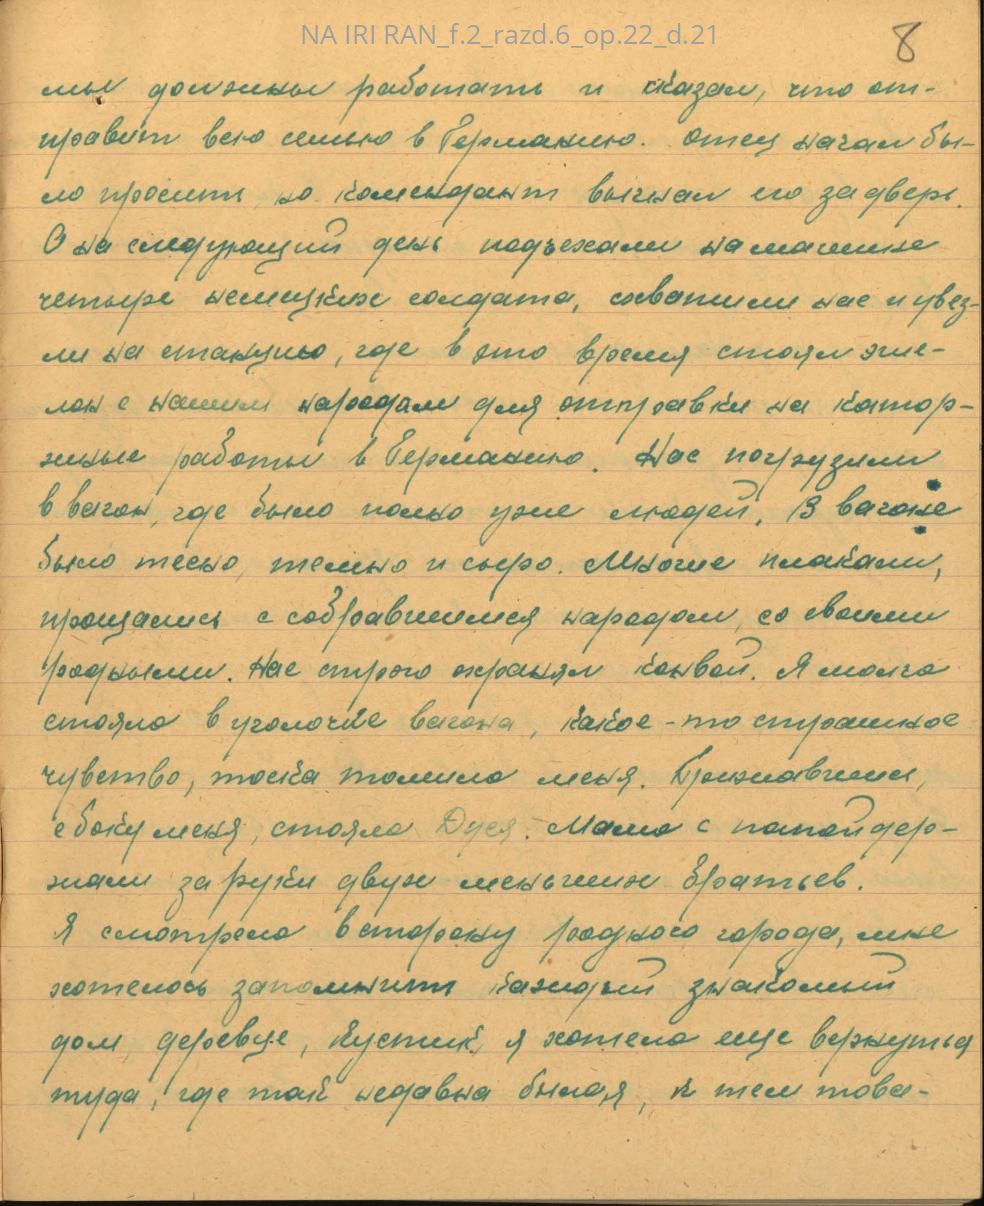 NA IRI RAN_f.2_razd.6_op.22_d.21
8
мы должны работать и сказал, что от-
правит всю семью в Германию. Отец начал бы-
ло просить, но комендант выгнал его за дверь.
О на следующий день подъехали на машине
четыре немецких солдата, схватили нас и увез-
ли на станцию, где в это время стоял эше-
лон с нашим народом для отправки на катор-
жные работы в Германию. Нас погрузили
в вагон, где было полно уже людей. В вагоне
было тесно, темно и сыро. Многие плакали,
прощались с собравшимся народом, со своими
родными. Нас строго охранял конвой. Я молча
стояла в уголочке вагона, какое-то страшное
чувство, тоска томила меня. Прижавшись,
с боку меня, стояла Дуся. Мама с папой дер-
жали за руки двух меньших братьев.
Я смотрела в сторону родного города, мне
хотелось запомнить каждый знакомый
дом, деревце, кустик, я хотела еще вернуться
туда, где так недавна была я, к тем това-